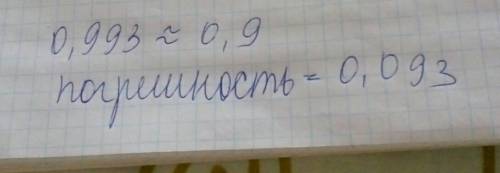 0,993 ≈ 0,9
погрешность = 0,093